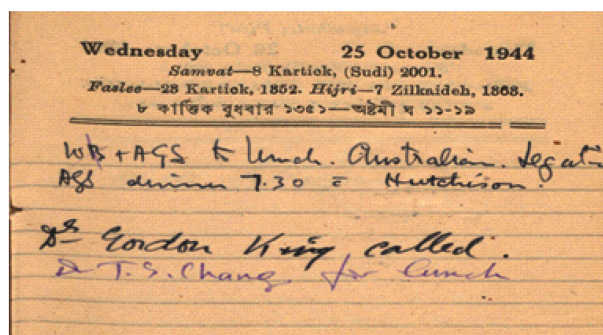 Wednesday 25 October 1944
Samvat—8 Kartick, (Sudi) 2001.
Faslee—28 Kartick, 1352. Hijri—7 Zilkaideh, 1363.
৮ কার্ত্তিক বুধবার ১৩৫১—অষ্টমী ঘ ১১-১৯
WB + AGS to lunch. Australian. Legati
AGS dinner 7.30 c̄ Hutchison.
Dr Gordon King called.
Dr T. S. Chang for lunch